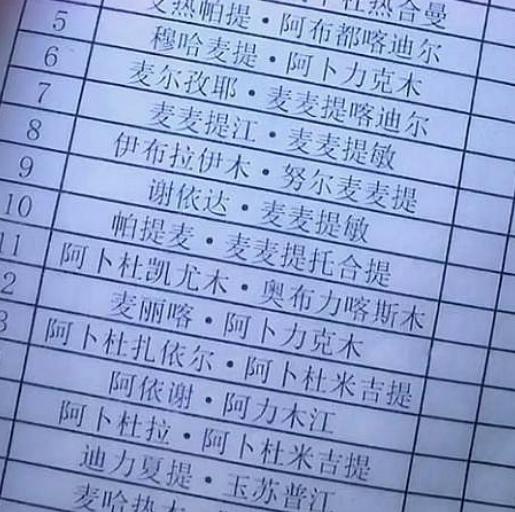 热合曼
热帕提·阿布都喀迪尔
5 穆哈麦提·阿卜力克木
6 麦尔孜耶·麦麦提喀迪尔
7 麦麦提江·麦麦提敏
8 伊布拉伊木·努尔麦麦提
9 谢依达·麦麦提敏
10 帕提麦·麦麦提托合提
11 阿卜杜凯尤木·奥布力喀斯木
2 麦丽喀·阿卜力克木
3 阿卜杜扎依尔·阿卜杜米吉提
阿依谢·阿力木江
阿卜杜拉·阿卜杜米吉提
迪力夏提·玉苏普江
麦哈热